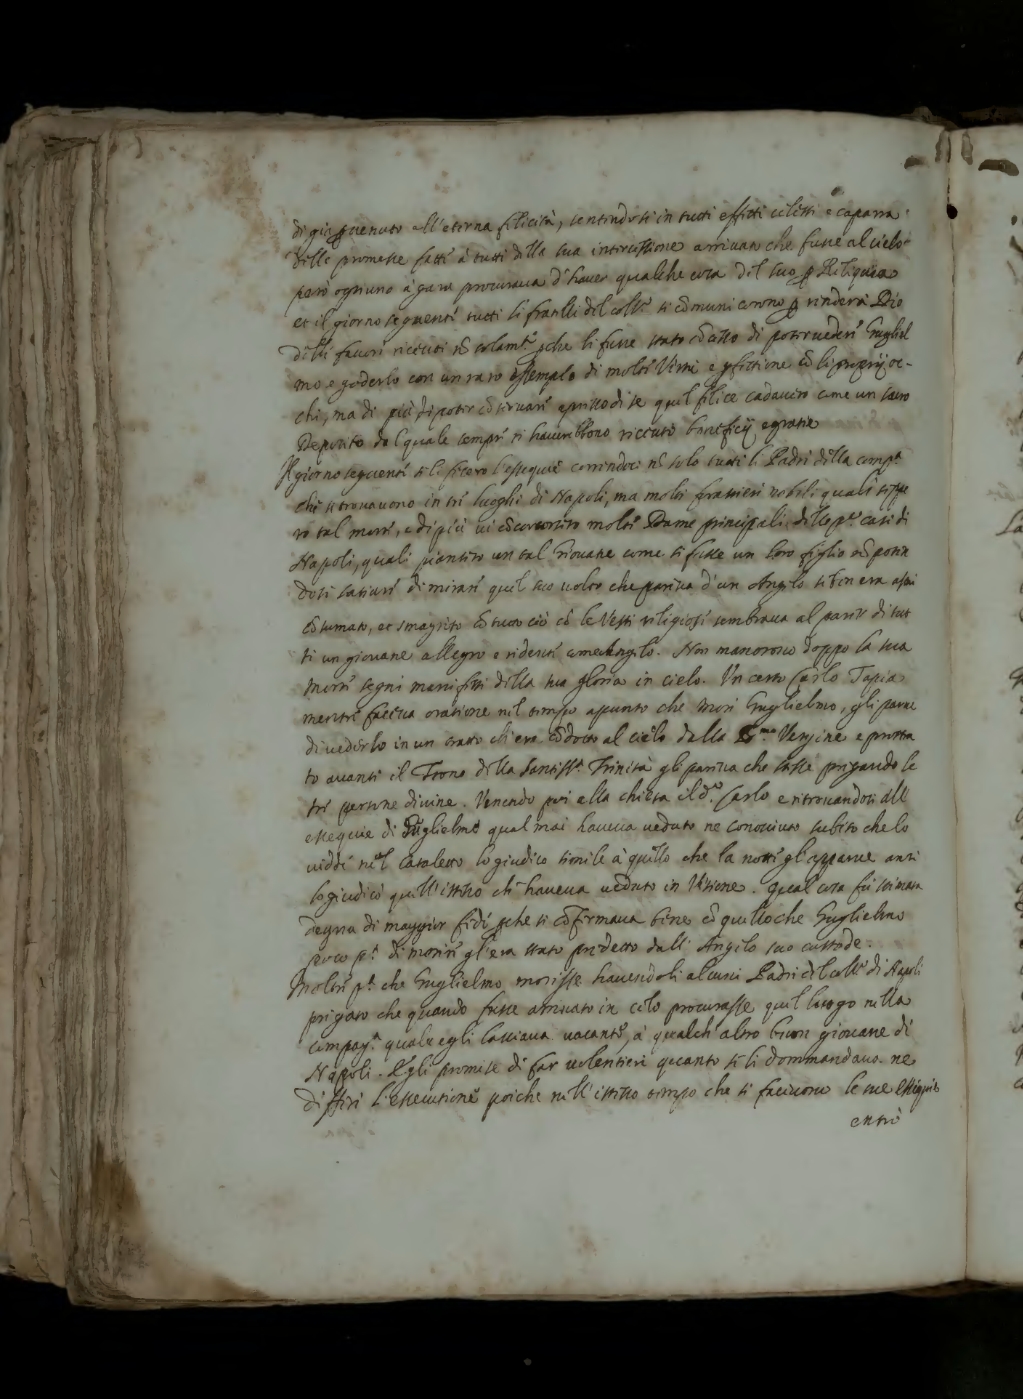 di già ꝑuenuto all'eterna felicità, sentendosi in tutti effetti celesti e caparra
delle promesse fatte à tutti della sua intercessione arriuan che fusse al cielo
però ogniuno à gara procuraua d'hauer qualche cosa del suo ꝑ Reliquia
et il giorno seguente tutti li fratelli del coll.º si cõmunicorono ꝑ rendere à Dio
delli fauori riceuuti nõ solam.te ꝑche li fusse stato cõcesso di poter uedere Gugliel
mo e goderlo con un raro essempio di molte Virtù e ꝑfettione cõ li proprij oc-
chi, ma di più di poter cõseruare apresso di se quel felice cadauero come un sacro
Deposito dal quale sempre si hauerebbono riceuuto beneficij e gratie
Il giorno seguente se li fecero l'essequie correndoci nõ solo tutti li Padri della comp.ª
che si trouauono in tre luoghi di Napoli, ma molti frastieri nobili quali seppe
ro tal morte, e di più ui cõcorsero molte Dame principali delle p.e case di
Napoli, quali piansero un tal Giouane come si fusse un loro figlio nõ poten
dosi satiare di mirare quel suo uolto che pareua d'un Angelo se ben era assai
cõsumato, et smagrito cõ tutto ciò cõ le Vesti religiose sembraua al parer di tut
ti un giouane allegro e ridente come Angelo. Non mancorono doppo la sua
morte segni manifesti della sua gloria in cielo. Un certo Carlo Tapia
mentre faceua oratione nel tempo apunto che morì Guglielmo, gli parue
di uederlo in un tratto ch'era cõdotto al cielo dalla S.ma Vergine e presenta
to auanti il Trono della Santiss.ª Trinità gli pareua che stesse pregando le
tre persone diuine. Venendo poi alla chiesa il d.º Carlo e ritrouandosi all
essequie di Guglielmo qual mai haueua ueduto ne conosciuto subito che lo
uidde nel cataletto lo giudicò simile à quello che la notte gl'apparue anzi
lo giudicò quell'istesso ch'haueua ueduto in Visione. Qual cosa fù stimata
degna di maggior fede ꝑche si cõfirmaua bene cõ quello che Guglielmo
poco p.ª di morire gl'era stato predetto dall'Angelo suo custode.
Molto p.ª che Guglielmo morisse hauendoli alcuni Padri del coll.º di Napoli
pregato che quando fusse arriuato in celo procurasse quel luogo nella
compag.ª quale egli lasciaua uacante, à qualch'altro buon giouane di
Napoli. Egli promise di far uolentieri quanto se li dommandaua ne
differì l'essecutione poiche nell'istesso tempo che si faceuono le sue essequie
entrò